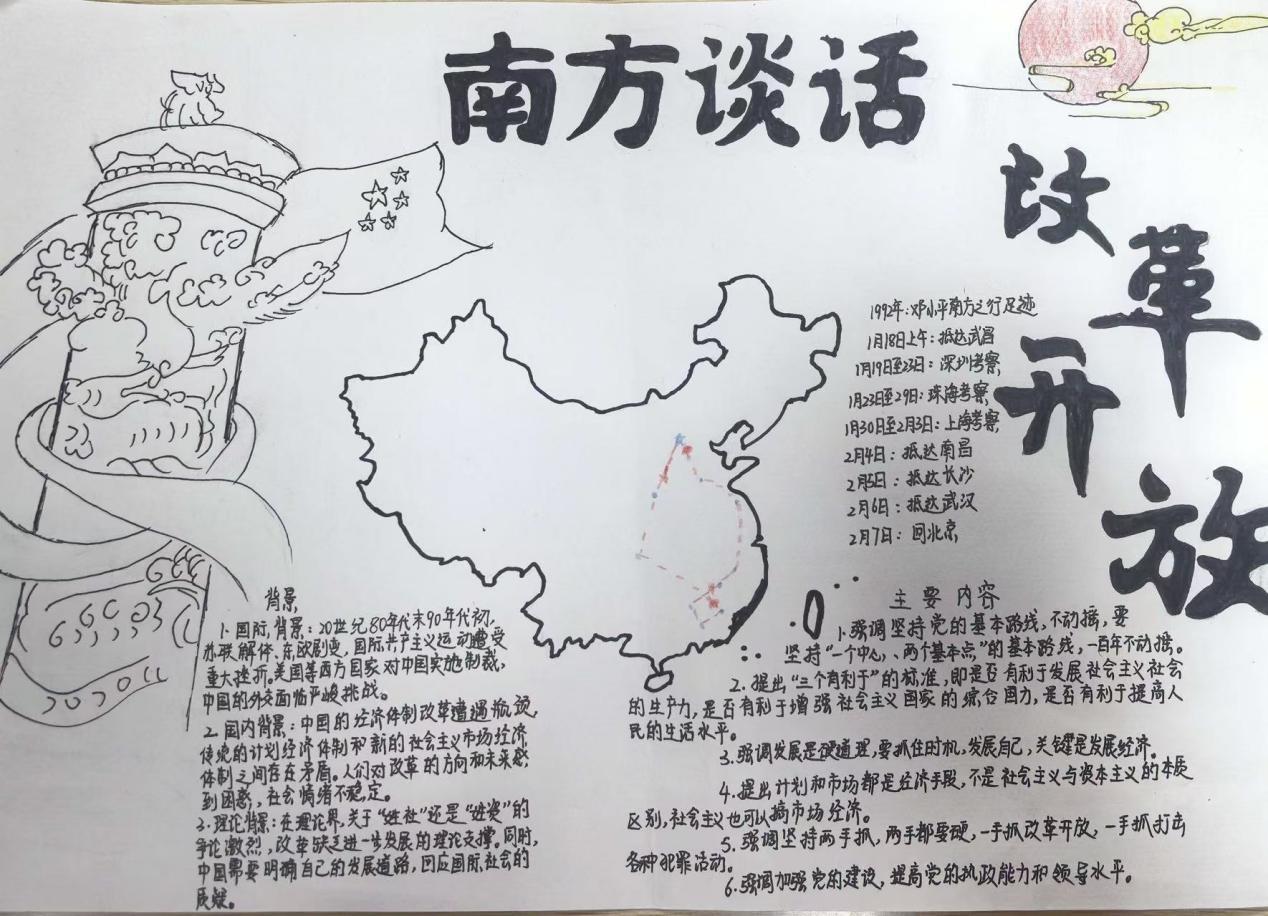 南方谈话
改革开放
1992年:邓小平南方之行足迹
1月18日上午:抵达武昌
1月19日至23日:深圳考察
1月23日至29日:珠海考察
1月30日至2月3日:上海考察
2月4日:抵达南昌
2月5日:抵达长沙
2月6日:抵达武汉
2月7日:回北京
背景
1.国际背景:20世纪80年代末90年代初,
苏联解体、东欧剧变,国际共产主义运动遭受
重大挫折。美国等西方国家对中国实施制裁,
中国的外交面临严峻挑战。
2.国内背景:中国的经济体制改革遭遇瓶颈,
传统的计划经济体制和新的社会主义市场经济
体制之间存在矛盾。人们对改革的方向和未来感
到困惑,社会情绪不稳定。
3.理论背景:在理论界,关于“姓社”还是“姓资”的
争论激烈,改革缺乏进一步发展的理论支撑。同时,
中国需要明确自己的发展道路,回应国际社会的
质疑。
主要内容
1.强调坚持党的基本路线,不动摇,要
坚持“一个中心、两个基本点”的基本路线,一百年不动摇。
2.提出“三个有利于”的标准,即是否有利于发展社会主义社会
的生产力,是否有利于增强社会主义国家的综合国力,是否有利于提高人
民的生活水平。
3.强调发展是硬道理,要抓住时机,发展自己,关键是发展经济。
4.提出计划和市场都是经济手段,不是社会主义与资本主义的本质
区别,社会主义也可以搞市场经济。
5.强调坚持两手抓,两手都要硬,一手抓改革开放,一手抓打击
各种犯罪活动。
6.强调加强党的建设,提高党的执政能力和领导水平。